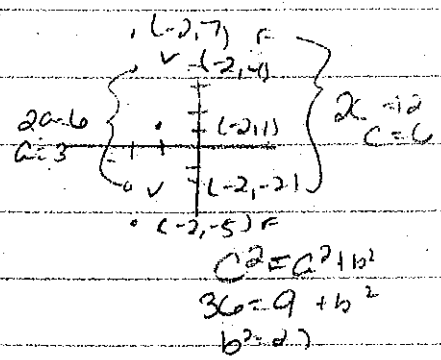 (-2,7) F
V (-2,4)
2a=6
a=3
(-2,1)
2c=12
c=6
V (-2,-2)
(-2,-5) F
c²=a²+b²
36=9+b²
b²=27